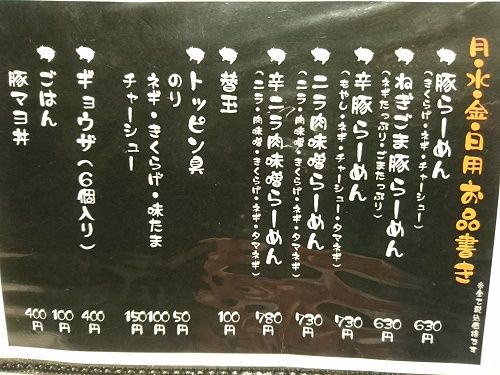 月・水・金・日用お品書き
※全て税込価格です
豚らーめん 630円
(きくらげ・ネギ・チャーシュー)
ねぎごま豚らーめん 630円
(ネギたっぷり・ごまたっぷり)
辛豚らーめん 730円
(もやし・ネギ・チャーシュー・タマネギ)
ニラ肉味噌らーめん 730円
(ニラ・肉味噌・きくらげ・ネギ・タマネギ)
辛ニラ肉味噌らーめん 780円
(ニラ・肉味噌・きくらげ・ネギ・タマネギ)
替玉 100円
トッピン具
のり 50円
ネギ・きくらげ・味たま 100円
チャーシュー 150円
ギョウザ(6個入り) 400円
ごはん 100円
豚マヨ丼 400円